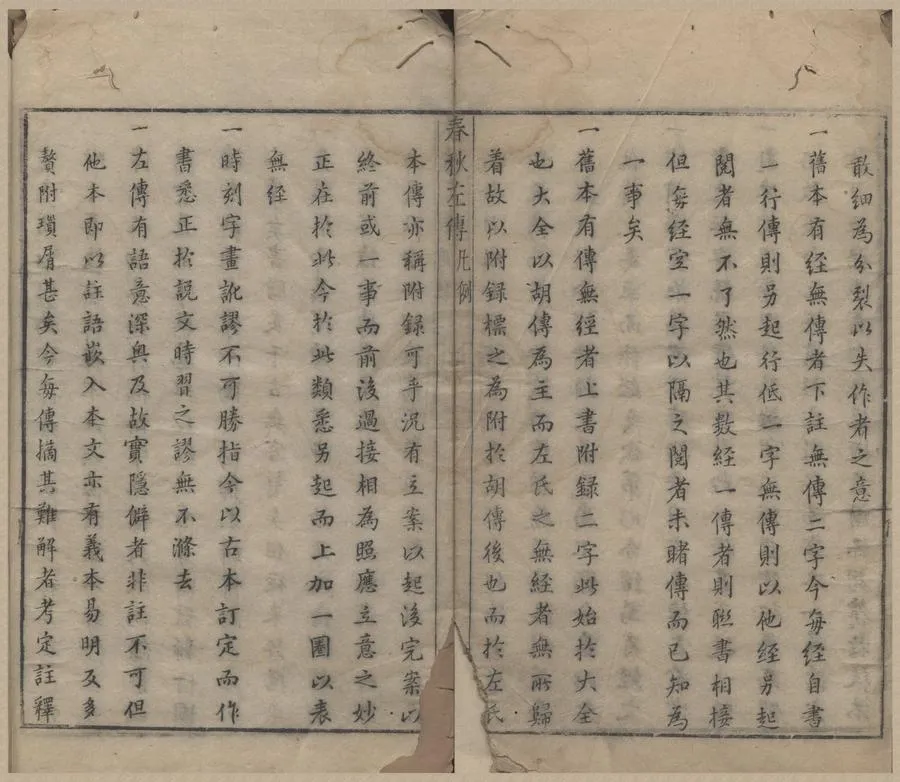 敢細為分裂以失作者之意
一舊本有經無傳者下註無傳二字今每經自書
一行傳則另起行低一字無傳則以他經另起
閱者無不了然也其數經一傳者則聮書相接
但每經空一字以隔之閱者未睹傳而已知為
一事矣
一舊本有傳無經者上書附録二字此始於大全
也大全以胡傳為主而左氏之無經者無所歸
着故以附録標之為附於胡傳後也而於左氏
春秋左傳凡例
本傳亦稱附録可乎況有立案以起後完案以
終前或一事而前後過接相為照應立意之妙
正在於此今於此類悉另起而上加一圈以表
無經
一時刻字畫訛謬不可勝指今以古本訂定而作
書悉正於説文時習之謬無不滌去
一左傳有語意深奥及故實隱僻者非註不可但
他本即以註語嵌入本文亦有義本易明反多
贅附瑣屑甚矣今每傳摘其難解者考定註釋